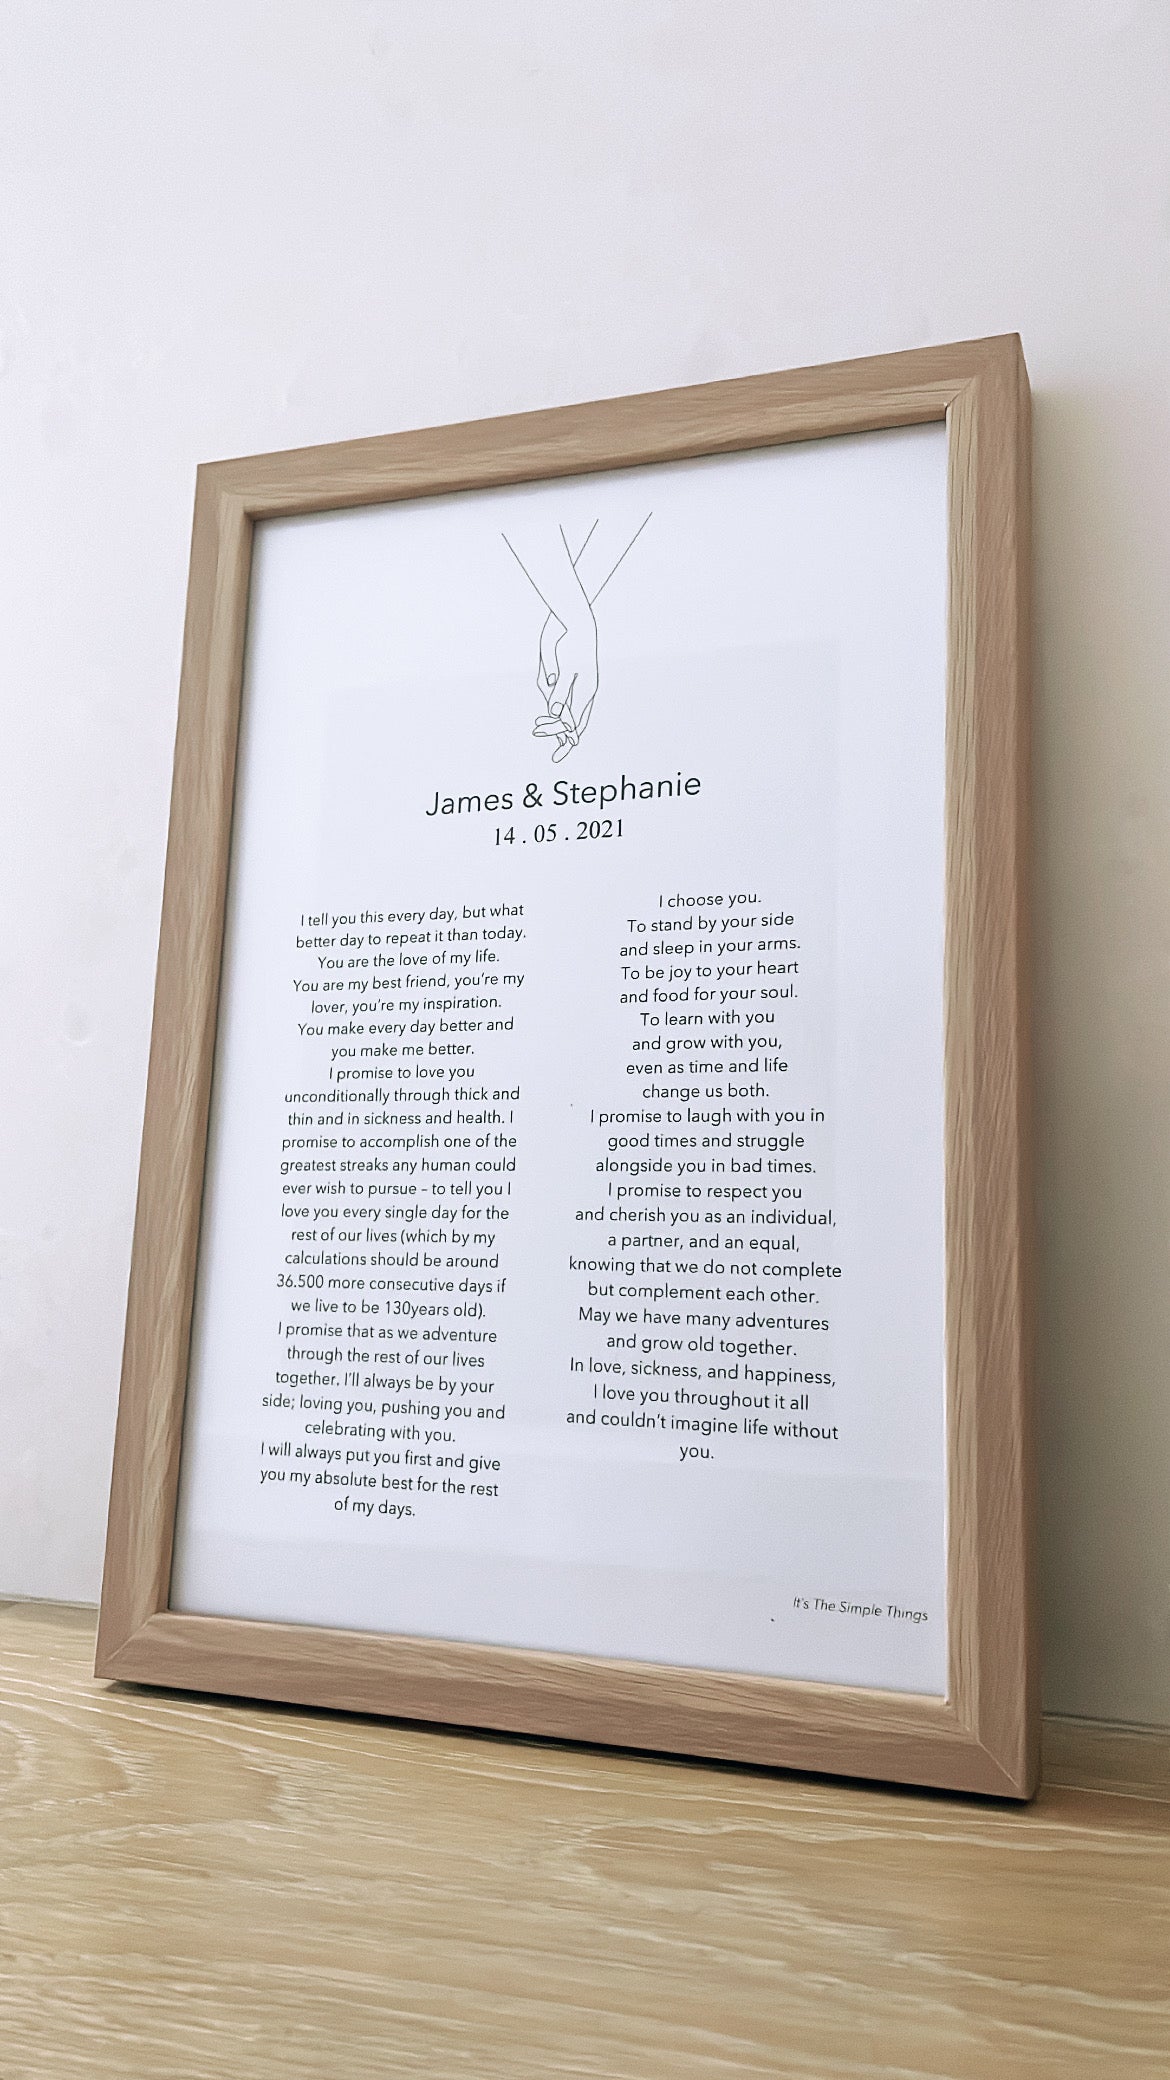 James & Stephanie
14 . 05 . 2021
I tell you this every day, but what
better day to repeat it than today.
You are the love of my life.
You are my best friend, you're my
lover, you're my inspiration.
You make every day better and
you make me better.
I promise to love you
unconditionally through thick and
thin and in sickness and health. I
promise to accomplish one of the
greatest streaks any human could
ever wish to pursue – to tell you I
love you every single day for the
rest of our lives (which by my
calculations should be around
36.500 more consecutive days if
we live to be 130years old).
I promise that as we adventure
through the rest of our lives
together, I'll always be by your
side; loving you, pushing you and
celebrating with you.
I will always put you first and give
you my absolute best for the rest
of my days.
I choose you.
To stand by your side
and sleep in your arms.
To be joy to your heart
and food for your soul.
To learn with you
and grow with you,
even as time and life
change us both.
I promise to laugh with you in
good times and struggle
alongside you in bad times.
I promise to respect you
and cherish you as an individual,
a partner, and an equal,
knowing that we do not complete
but complement each other.
May we have many adventures
and grow old together.
In love, sickness, and happiness,
I love you throughout it all
and couldn't imagine life without
you.
It's The Simple Things